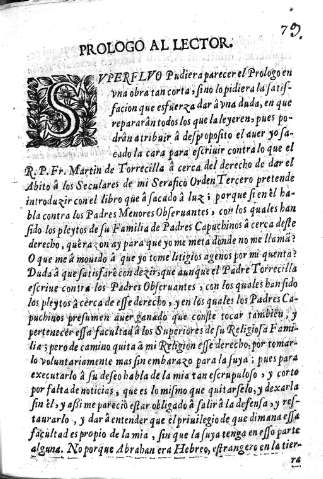 79.
PROLOGO AL LECTOR.
SVPERFLVO Pudiera parecer el Prologo en
vna obra tan corta, sino lo pidiera la satis-
facion que esfuerza dar à vna duda, en que
repararàn todos los que la leyeren, pues po-
dràn atribuir à desproposito el auer yo sa-
cado la cara para escriuir contra lo que el
R. P. Fr. Martin de Torrecilla à cerca del derecho de dar el
Abito à los Seculares de mi Serafico Orden Tercero pretende
introduzir con el libro que à sacado à luz; porque si en èl ha-
bla contra los Padres Menores Obseruantes, con los quales han
sido los pleytos de su Familia de Padres Capuchinos à cerca deste
derecho, què razon ay para que yo me meta donde no me llamã?
O que me à mouido à que yo tome litigios agenos por mi quenta?
Duda à que satisfarè con dezir, que aunque el Padre Torrecilla
escriue contra los Padres Obseruantes, con los quales han sido
los pleytos à cerca de esse derecho, y en los quales los Padres Ca-
puchinos presumen auer ganado que conste tocar tambien, y
pertenecer essa facultad à los Superiores de su Religiosa Fami-
lia; pero de camino quita à mi Religion esse derecho, por tomar-
lo voluntariamente mas sin embarazo para la suya; pues para
executarlo à su deseo habla de la mia tan escrupuloso, y corto
por falta de noticias, que es lo mismo que quitarselo, y dexarla
sin èl, y assi me pareciò estar obligado à salir à la defensa, y res-
taurarlo, y dar à entender que el priuilegio de que dimana essa
facultad es propio de la mia, sin que la suya tenga en esso parte
alguna. No porque Abrahan era Hebreo, estrangero en la tier-
ra